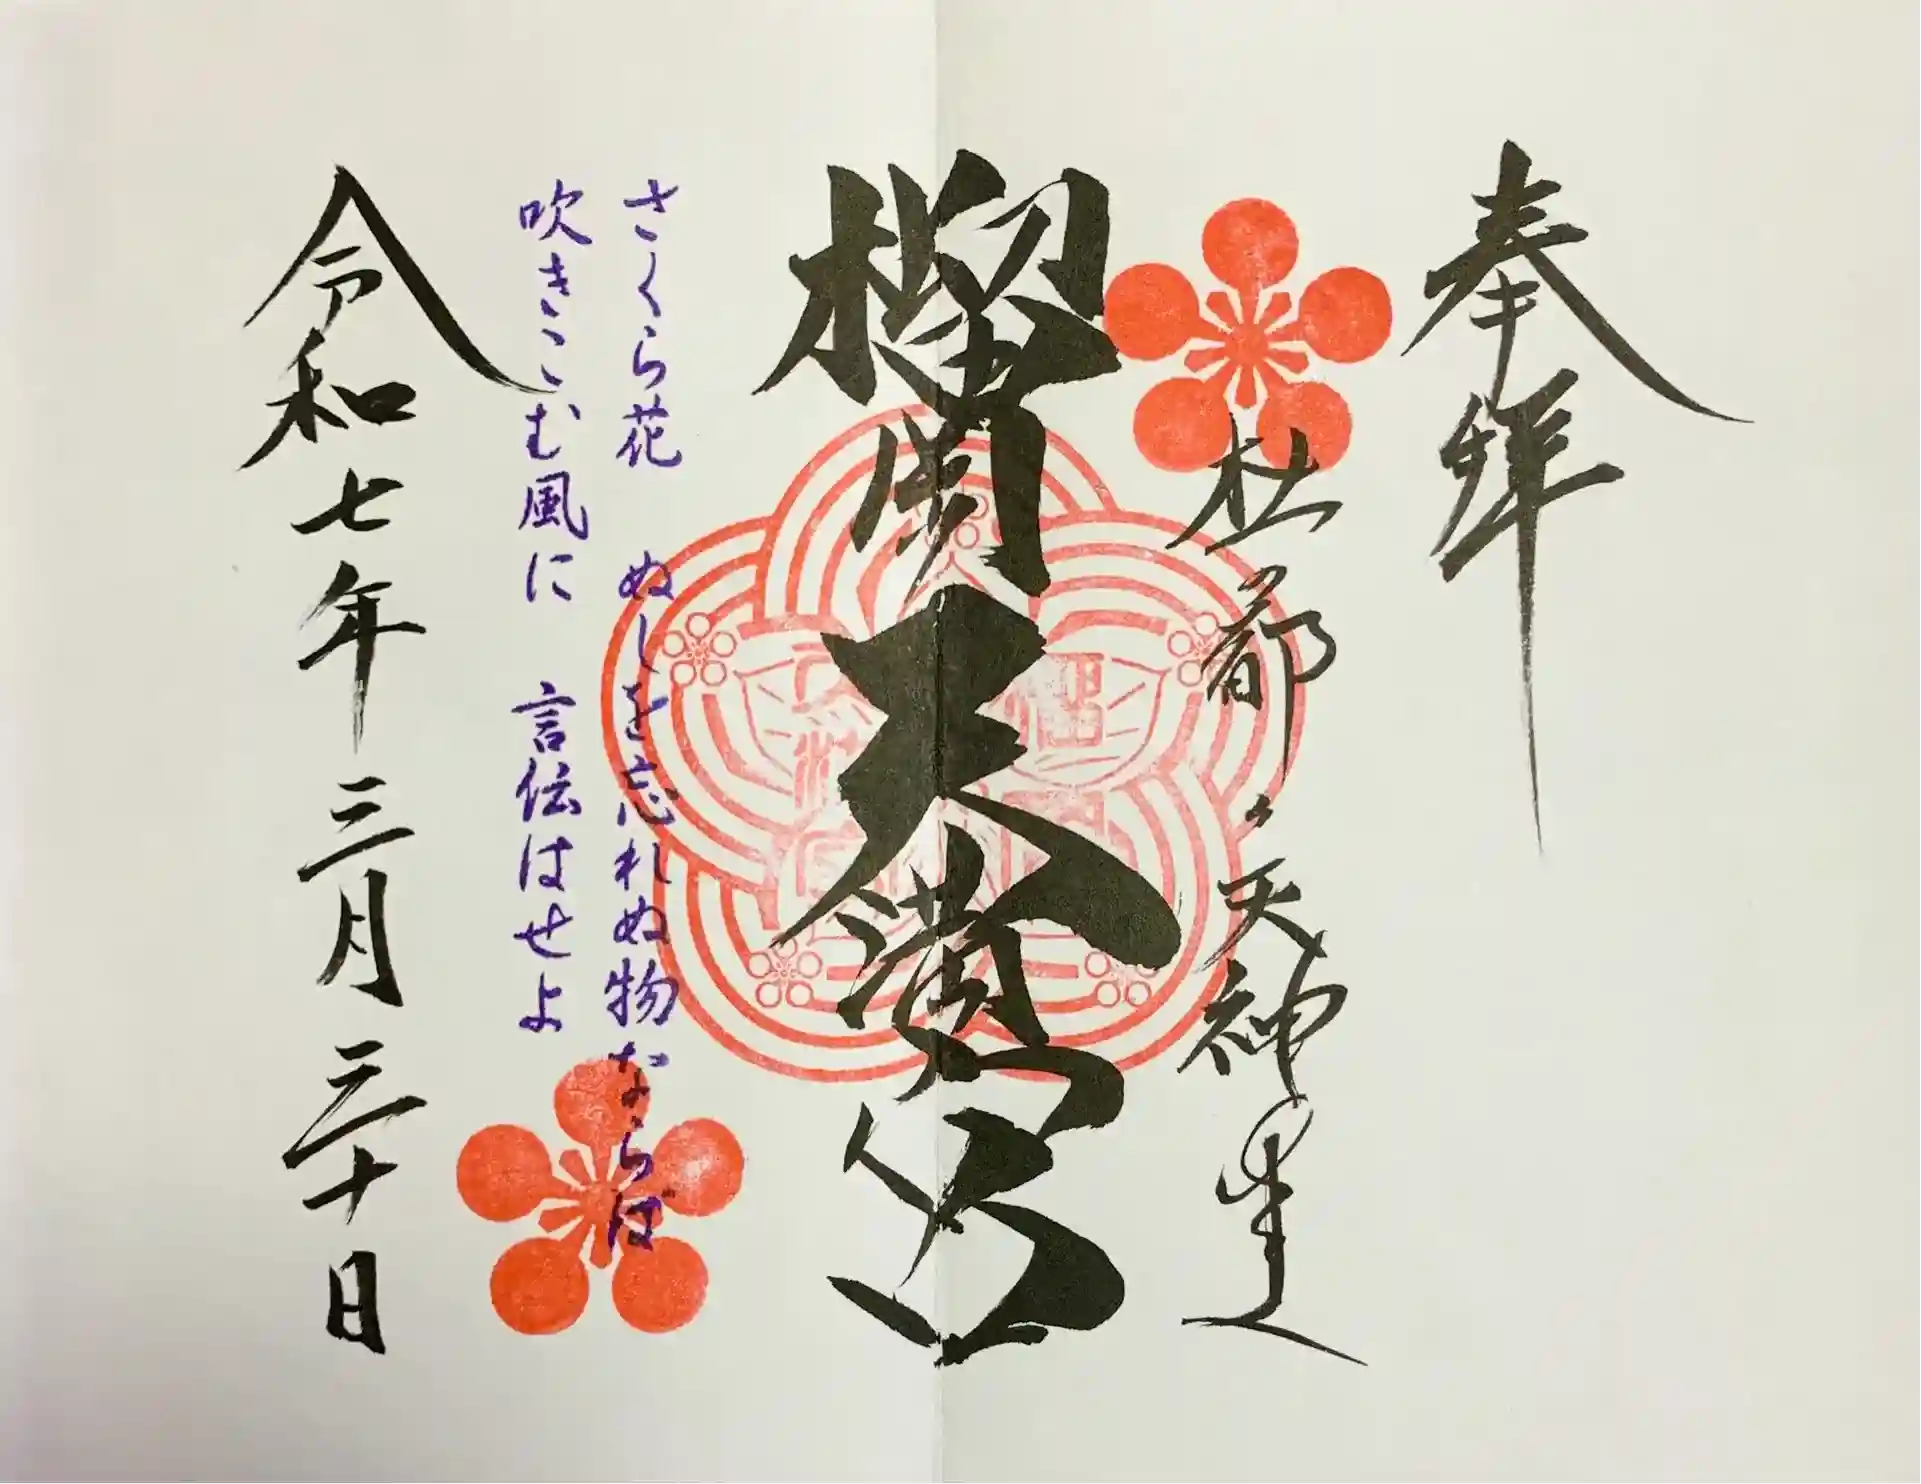 奉拝
杜都 天神
榴岡天満宮
さくら花 ぬしを忘れぬ物ならば
吹きこむ風に 言伝はせよ
令和七年三月三十日